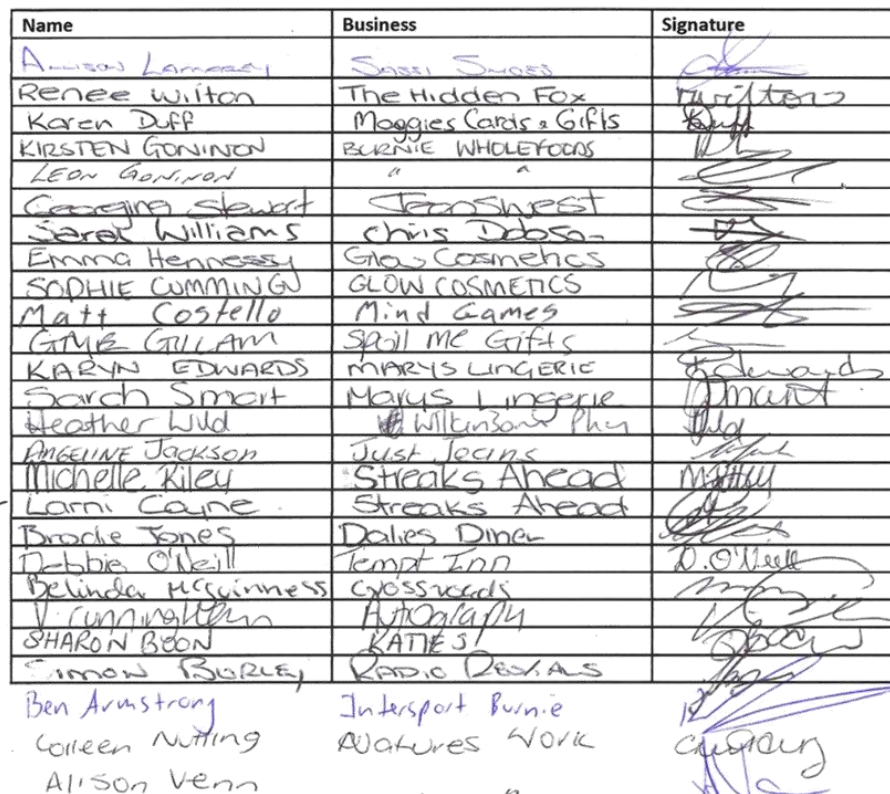 Name Business Signature
Renee Wilton The Hidden Fox rwilton
Karen Duff Maggies Cards & Gifts KDuff
KIRSTEN GONINON BURNIE WHOLEFOODS
LEON GONINON " "
Georgina Stewart Jeanswest
Sarah Williams Chris Dobson
Emma Hennessy Glow Cosmetics
SOPHIE CUMMING GLOW COSMETICS
Matt Costello Mind Games
GULAM Spoil me Gifts
KARYN EDWARDS MARYS LINGERIE KEdwards
Sarah Smart Marys Lingerie Smart
Heather Wild Wilkinsons Phy
ANGELINE JACKSON Just Jeans
Michelle Kiley Streaks Ahead
Larni Coyne Streaks Ahead
Brodie Jones Dalies Diner
Debbie O'Neill Tempt Inn D.O'Neill
Belinda McGuinness Crossroads
V. Cunningham Autography
SHARON BOON KATIES
SIMON BURLEY RADIO RENTALS
Ben Armstrong Intersport Burnie
Colleen Nutting Natures Work
Alison Venn "